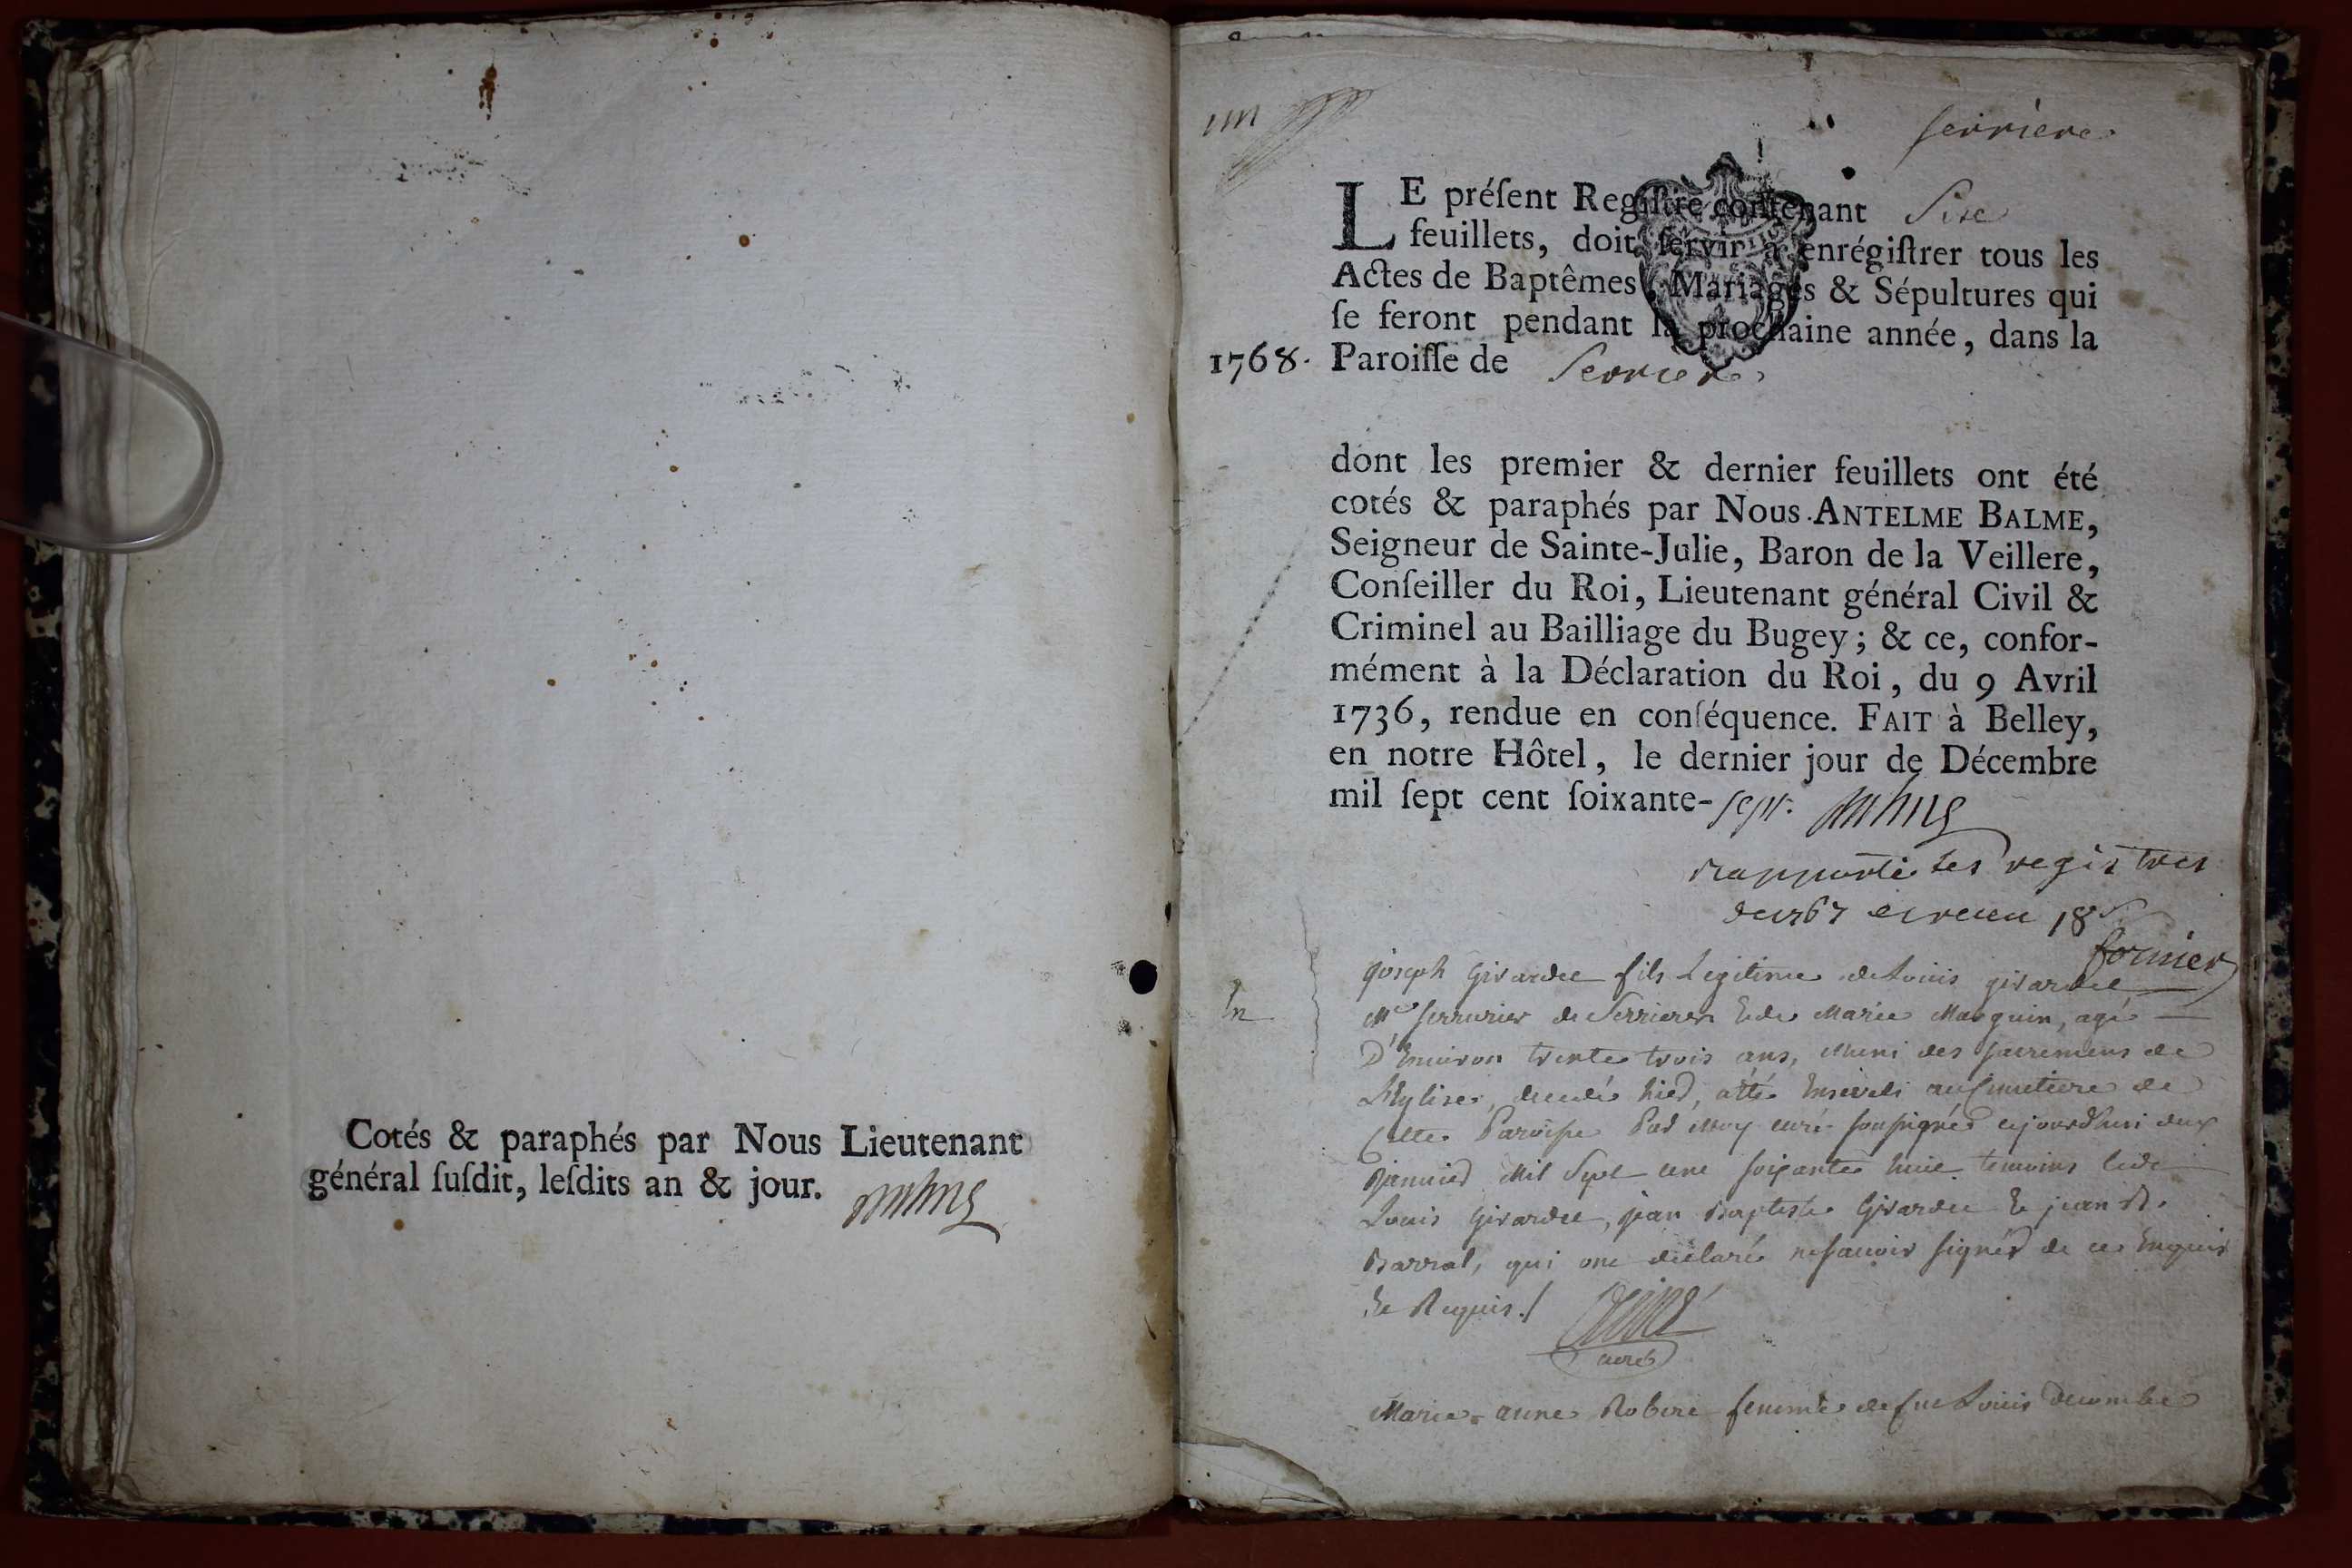 Cotés & paraphés par Nous Lieutenant
général ſuſdit, leſdits an & jour.
un
serriere
LE préſent Regiſtre contenant Sise
feuillets, doit ſervir à enrégiſtrer tous les
Actes de Baptêmes, Mariages & Sépultures qui
ſe feront pendant la prochaine année, dans la
1768. Paroiſſe de Serrieres
dont les premier & dernier feuillets ont été
cotés & paraphés par Nous ANTELME BALME,
Seigneur de Sainte-Julie, Baron de la Veillere,
Conſeiller du Roi, Lieutenant général Civil &
Criminel au Bailliage du Bugey; & ce, confor-
mément à la Déclaration du Roi, du 9 Avril
1736, rendue en conſéquence. FAIT à Belley,
en notre Hôtel, le dernier jour de Décembre
mil ſept cent ſoixante-sept.
rapporté les registres
de 1767 et receu 18 s
fornier
joseph Girardet fils Legitime de Louis girardet
Me serrurier de Serrieres & de Marie Manguin, agé
D'Environ trente trois ans, Muni des sacremens de
L'Eglise, decedé hier, a été Enseveli au Cimetiere de
Cette Paroisse Par Moy curé soussigné ajourdhui deux
janvier Mil Sept cent soixante huit temoins ledt
Louis Girardet, jean Baptiste Girardet & jean B.
Barral, qui ont declaré ne savoir signer de ce Enquis
& Requis./
curé
Marie-anne Robert femme de fut Louis Decombe